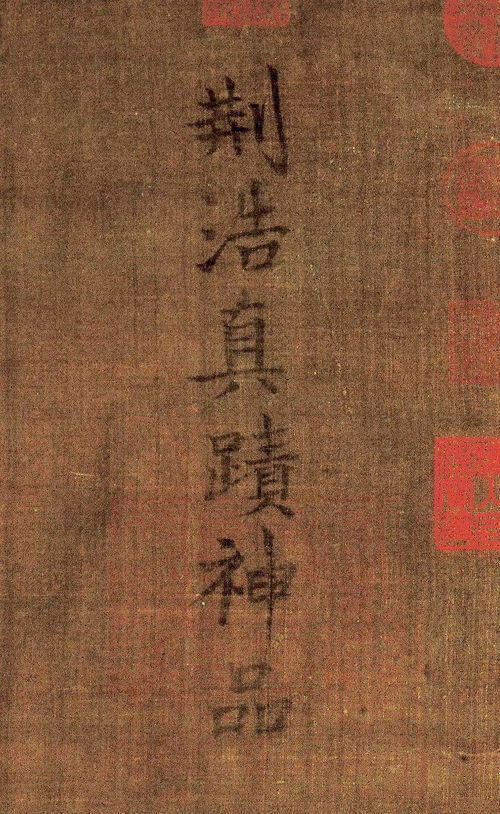 荆浩真蹟神品